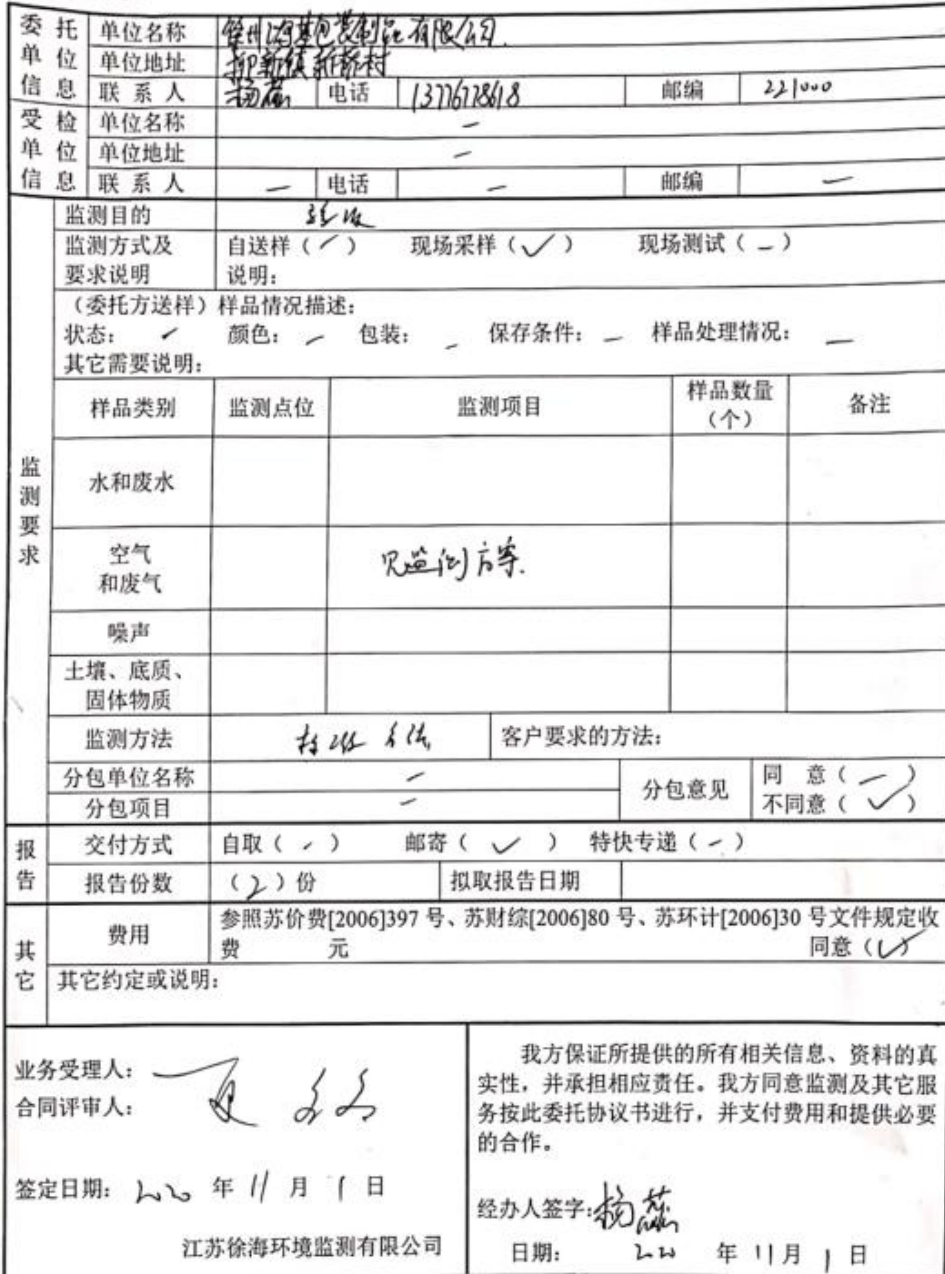 委托单位信息 单位名称 徐州鸿基包装制品有限公司
单位地址 柳新镇新桥村
联系人 杨燕 电话 13776778618 邮编 221000
受检单位信息 单位名称 —
单位地址 —
联系人 — 电话 — 邮编 —
监测要求
监测目的 验收
监测方式及要求说明 自送样(／) 现场采样(✓) 现场测试(－)
说明:
(委托方送样)样品情况描述:
状态: ／ 颜色: ／ 包装: － 保存条件: － 样品处理情况: —
其它需要说明:
样品类别 监测点位 监测项目 样品数量(个) 备注
水和废水
空气和废气 见监测方案.
噪声
土壤、底质、固体物质
监测方法 标准方法 客户要求的方法:
分包单位名称 —
分包项目 —
分包意见 同 意(—)
不同意(✓)
报告 交付方式 自取(／) 邮寄(✓) 特快专递(－)
报告份数 (2)份 拟取报告日期
其它 费用 参照苏价费[2006]397 号、苏财综[2006]80 号、苏环计[2006]30 号文件规定收
费 元 同意(✓)
其它约定或说明:
业务受理人:
合同评审人:
签定日期: 2020 年 11 月 1 日
江苏徐海环境监测有限公司
我方保证所提供的所有相关信息、资料的真
实性，并承担相应责任。我方同意监测及其它服
务按此委托协议书进行，并支付费用和提供必要
的合作。
经办人签字: 杨燕
日期: 2020 年 11 月 1 日